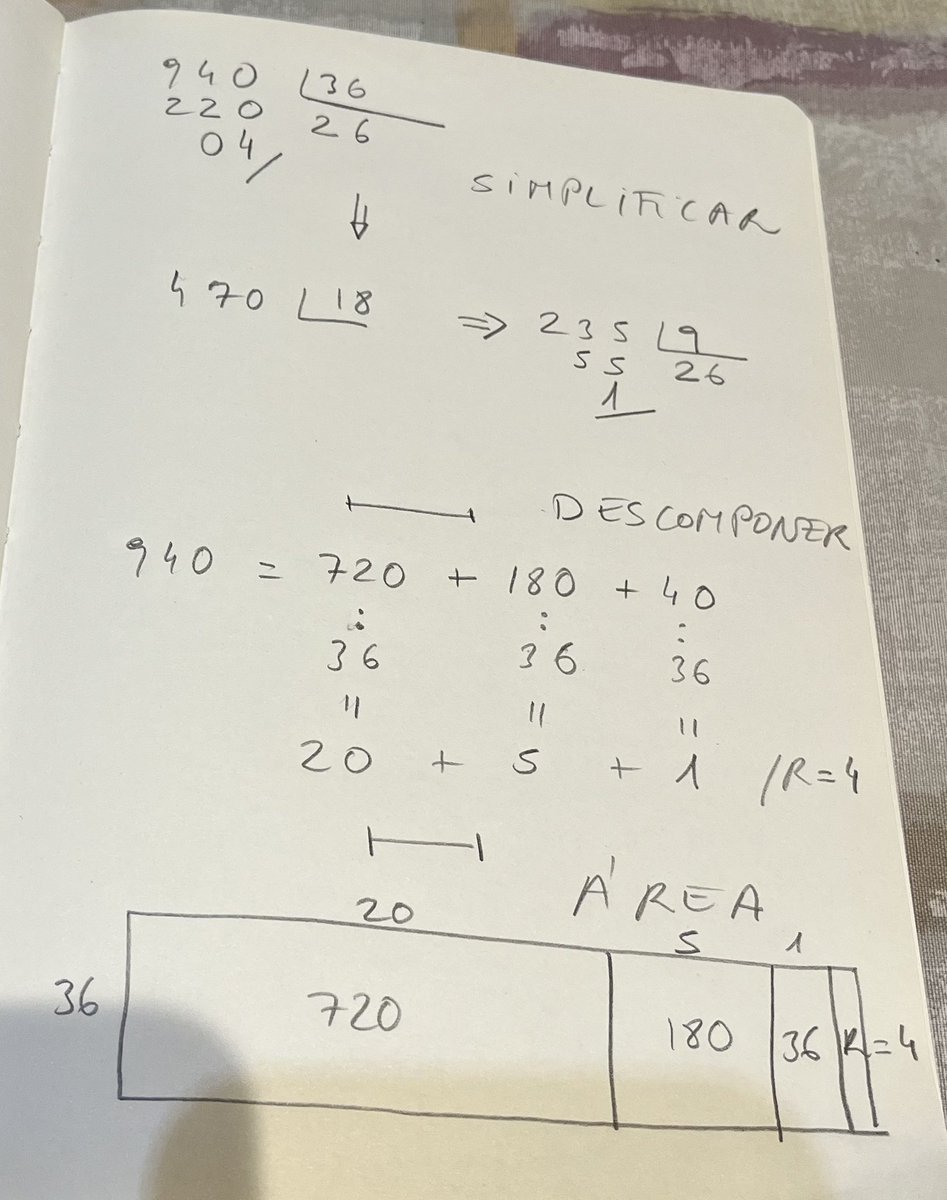 940 36
220 26
04/
SIMPLIFICAR
⇓
470 18 ⇒ 235 9
55 26
1
DESCOMPONER
940 = 720 + 180 + 40
: : :
36 36 36
= = =
20 + 5 + 1 /R=4
ÁREA
20 5 1
36 720 180 36 R=4